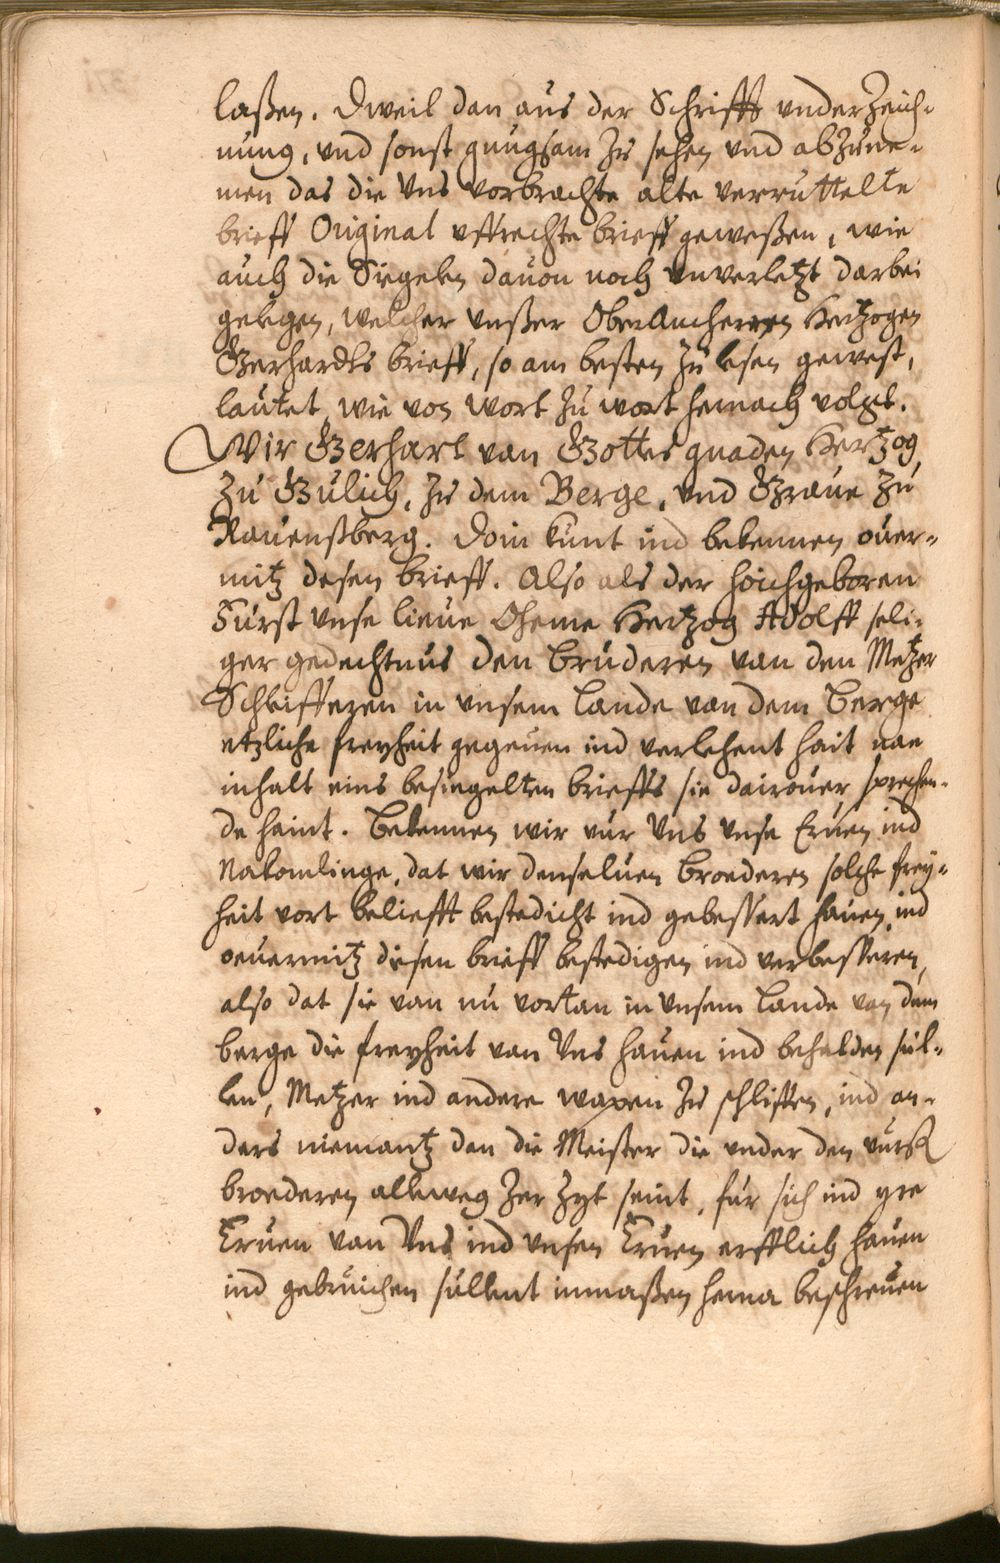 laßen. Dweil dan aus der Schrifft vnderzeich-
nung, vnd sonst gnugsam zu sehen vnd abzune-
men das die Vns vorbrachte alte verruttelte
brieff Original vffrechte brieff geweßen, wie
auch die Siegelen dauon noch vnverletzt darbei
gelegen, welcher vnßer OberAncherren Hertzogen
Gerhardts brieff, so am besten zu lesen gewest,
lautet wie von wort zu wort hernach volgt.
Wir Gerhart van Gottes gnaden Hertzog
zu Gulich, zu dem Berge, vnd Graue zu
Rauenßberg. Doin kunt ind bekennen ouer-
mitz desen brieff. Also als der hoichgeboren
Furst vnse lieue Oheme Hertzog Adolff seli-
ger gedechtnus den bruderen van den Metzer
Schliffezen in vnsem Lande van dem Berge
etzliche freyheit gegeuen ind verlehent hait nae
inhalt eins besiegelten brieffs sie dairouer sprechen-
de haint. Bekennen wir vur Vns vnse Eruen ind
Nakomlinge, dat wir denseluen broederen solche frey-
heit vort beliefft bestedicht ind gebessert hauen ind
oeuermitz diesen brieff bestedigen ind verbesseren,
also dat sie van nu vortan in vnsem Lande van dem
berge die freyheit van Vns hauen ind behalden sul-
len, Metzer ind andere wapen zu schliffen, ind an-
ders niemantz dan die Meister die vnder den vurß
broederen alleweg zer zyt seint, fur sich ind yre
Eruen van Vns ind vnsen Eruen erfflich hauen
ind gebruichen sullent inmaßen herna beschreuen